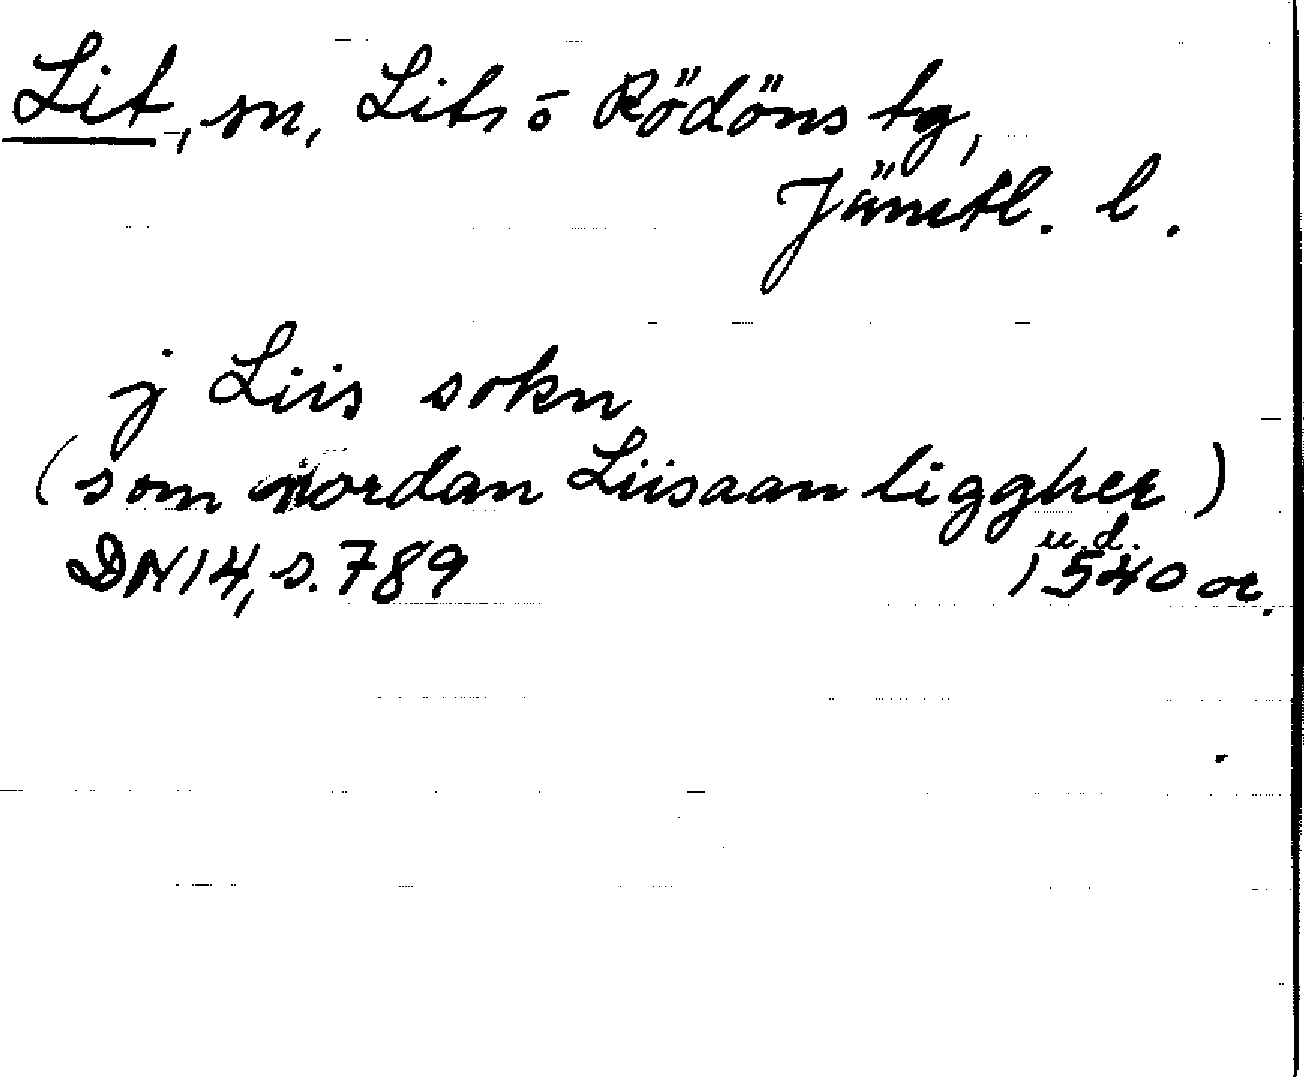 Lit, sn, Lits o Rödöns tg,
Jämtl. l.
j Liis sokn
(som nordan Liisaan liggher)
u.d.
DN14, s. 789 1540 or.